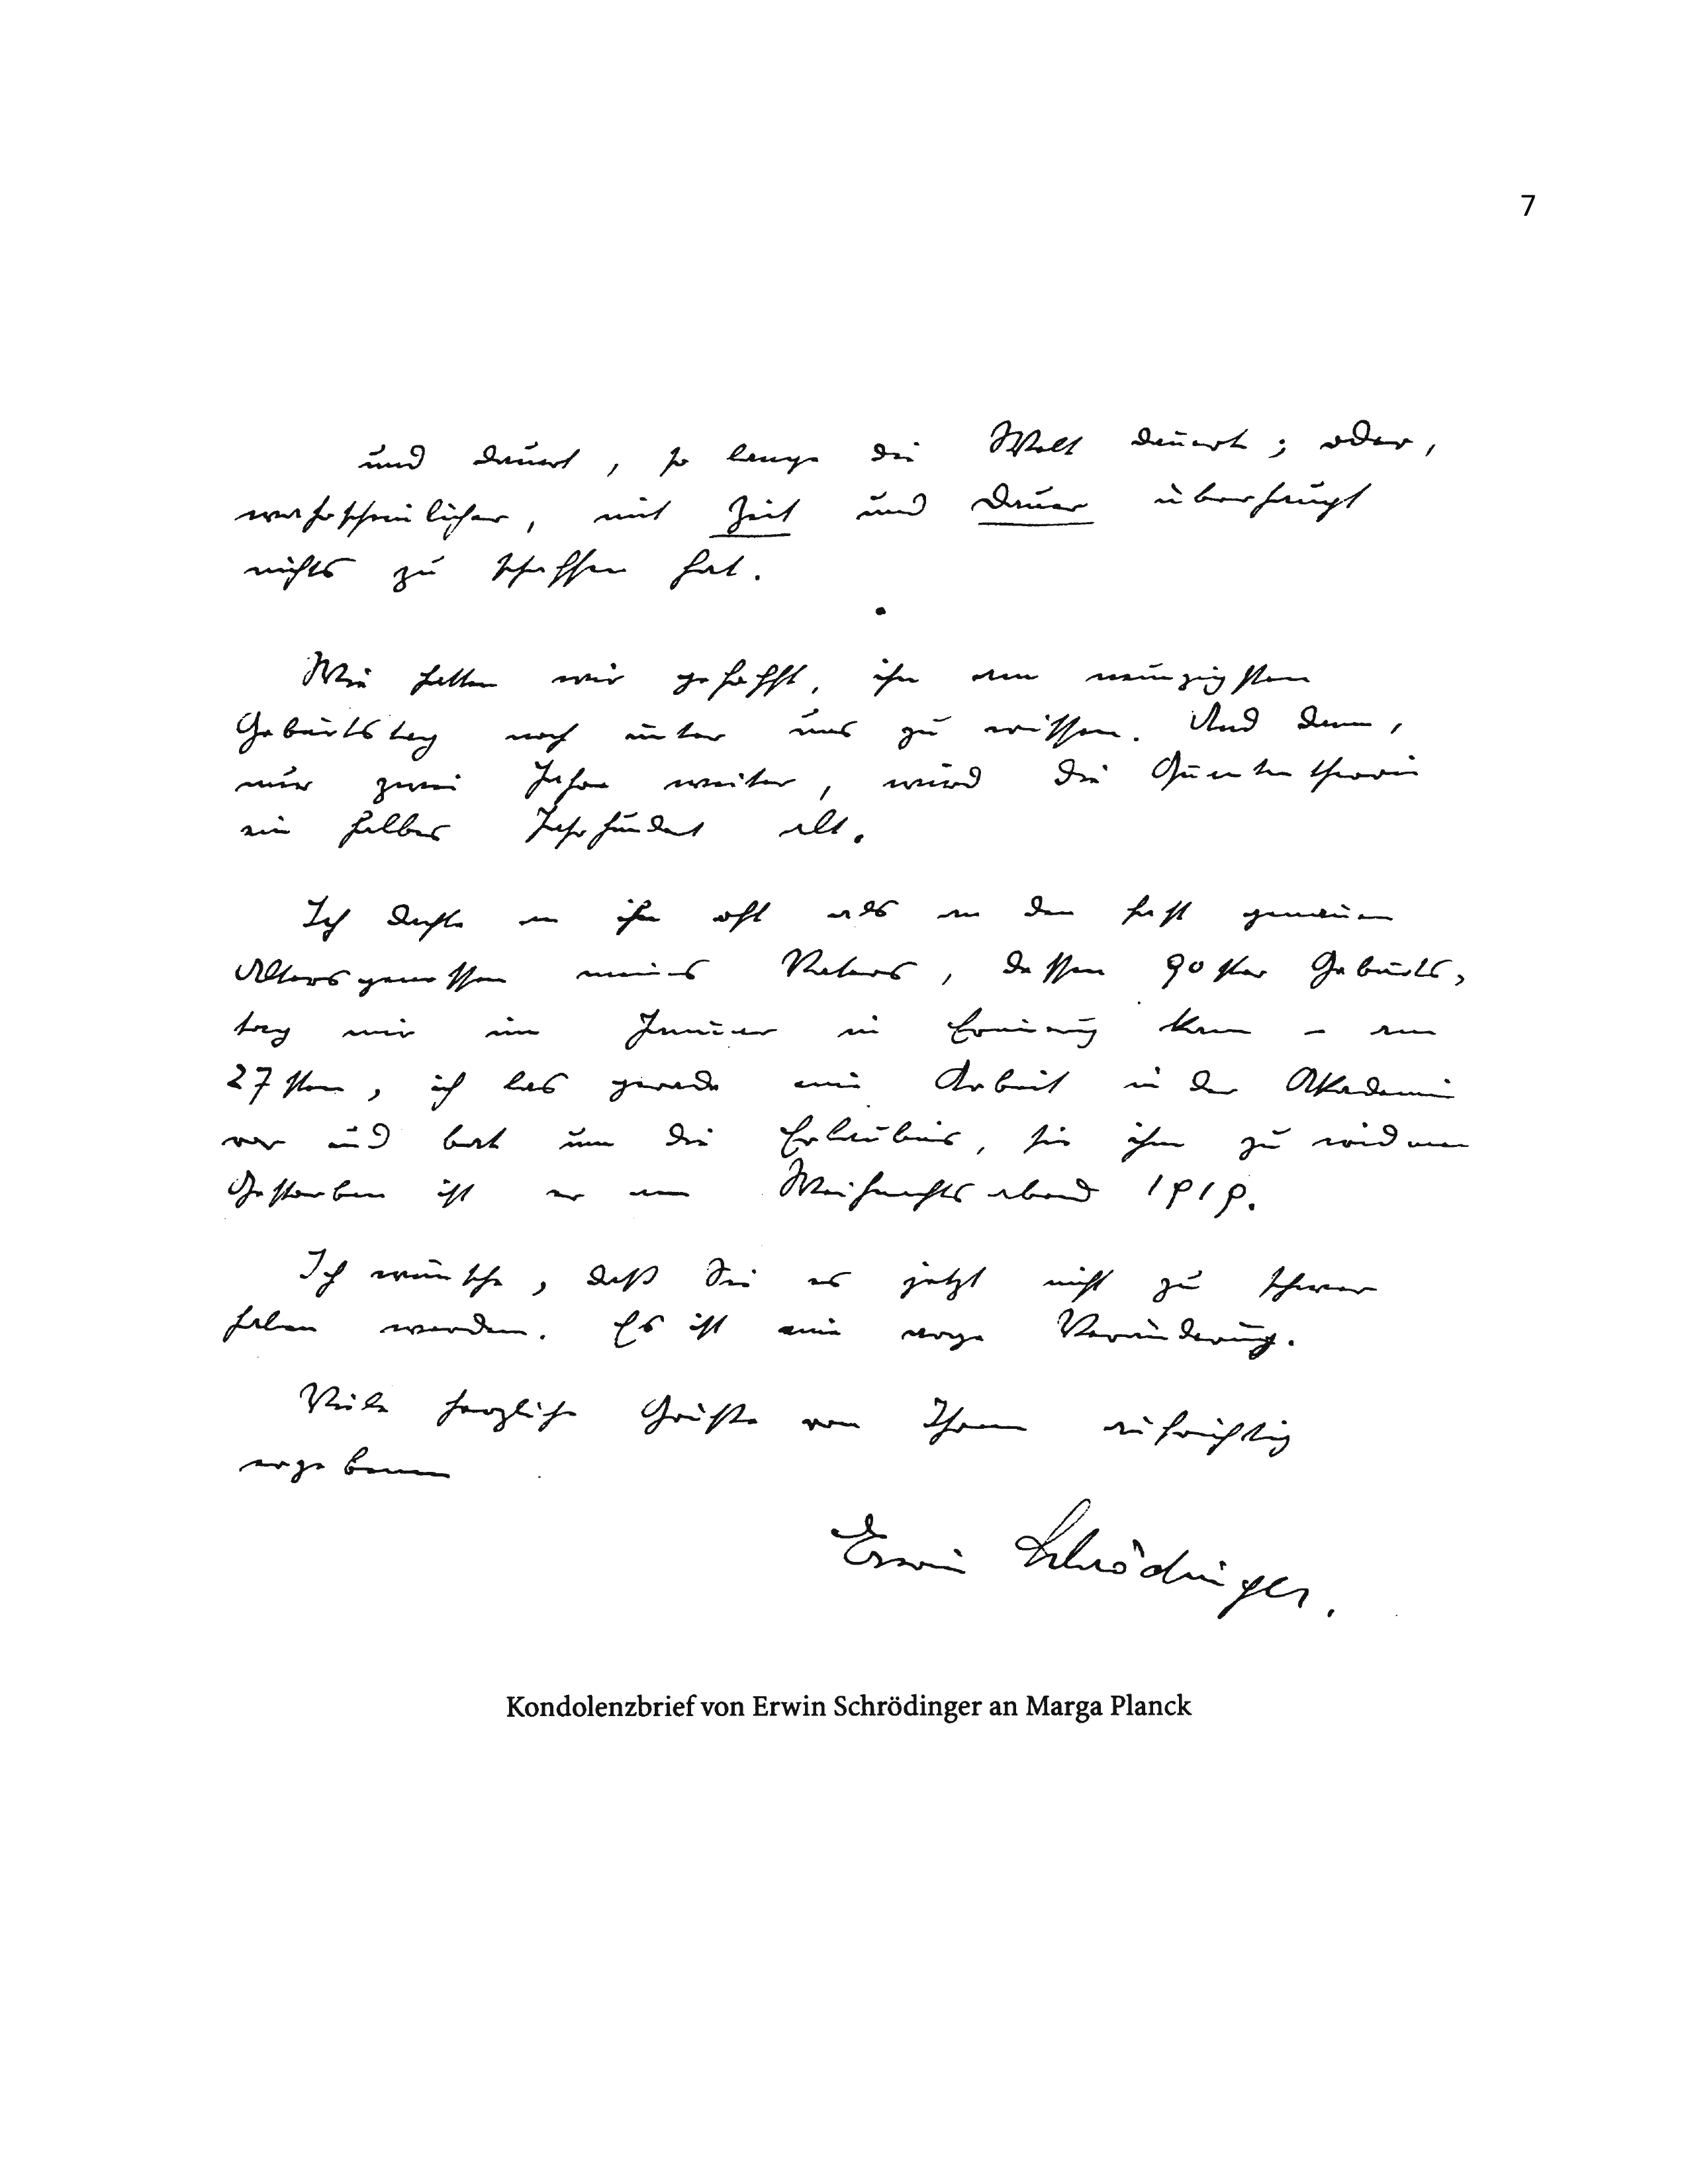 7
und dauert, so lange die Welt dauert; oder,
wahrscheinlicher, mit Zeit und Dauer überhaupt
nichts zu schaffen hat.
Wie hatten wir gehofft, ihn am neunzigsten
Geburtstag noch unter uns zu wissen. Und dann,
nur zwei Jahre weiter, wird die Quantentheorie
ein halbes Jahrhundert alt.
Ich dachte an ihn oft als an den fast genauen
Altersgenossen meines Vaters, dessen 90ster Geburts-
tag mir im Januar in Erinnerung kam – am
27sten, ich las gerade eine Arbeit in der Akademie
vor und bat um die Erlaubnis, sie ihm zu widmen
Gestorben ist er am Weihnachtsabend 1919.
Ich wünsche, daß Sie es jetzt nicht zu schwer
haben werden. Es ist eine arge Veränderung.
Viele herzliche Grüße von Ihrem aufrichtig
ergebenen
Erwin Schrödinger.
Kondolenzbrief von Erwin Schrödinger an Marga Planck